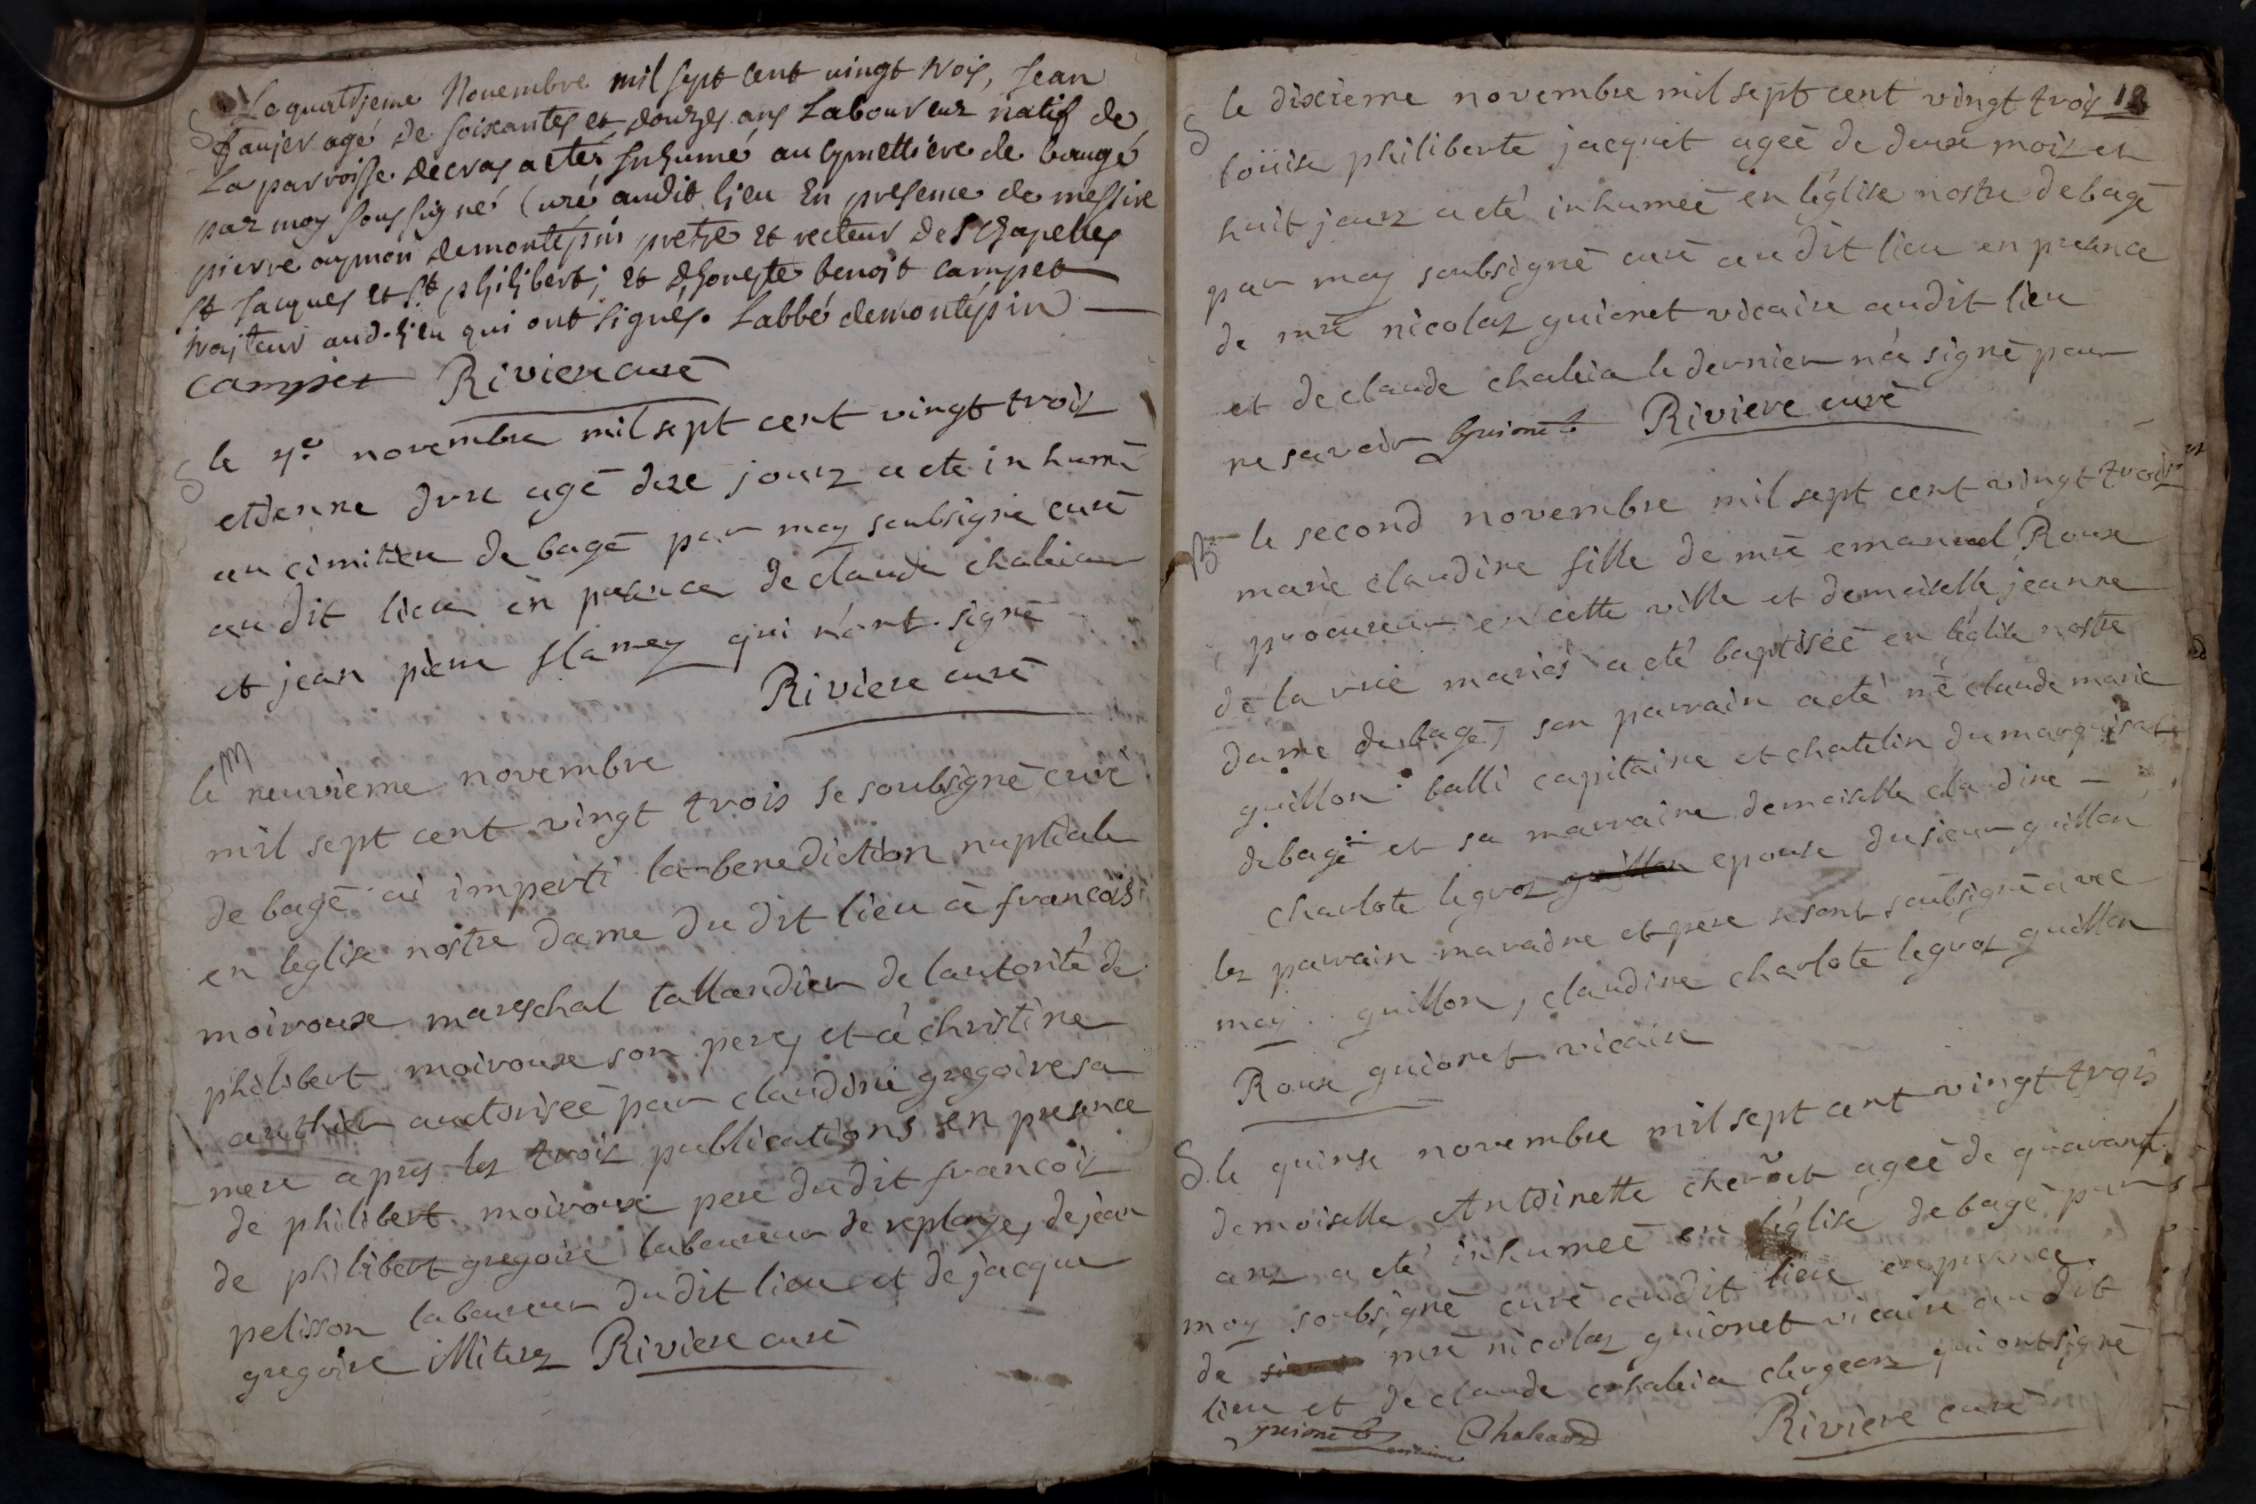 S Le quattrieme Novembre mil sept cent vingt trois, Jean
faujer agé de soixantes et douzes ans Laboureur natif de
La parroisse de cras a etés Inhumé au cymettiere de baugé
par moy soussigné Curé audit lieu En presence de messire
pierre aymon demontépin pretre et recteur des Chapelles
st Jacques et st philibert; et d'honeste benoit campet
traiteur aud. lieu qui ont signés. Labbé demontépin
campet Riviere curé
S le 7e novembre mil sept cent vingt trois
etienne agé dixe jours a eté inhumé
au cimitiere de bagé par moy soubsigné curé
au dit lieu en presance de claude chaleia
et jean piere flamey qui n'ont signé
Riviere curé
M
le neuvieme novembre
mil sept cent vingt trois je soubsigné curé
de bagé ai imperti la benediction nuptiale
en leglise nostre dame du dit lieu à francois
moiroux mareschal tallandier de lautorité de
philibert moiroux son pere, et à christine
authier autorisée par claudine gregoire sa
mere apres les trois publications en presance
de philibert moiroux pere du dit francois
de philibert gregoire laboureur de replonge, de jean
pelisson laboureur du dit lieu et de jacque
gregoire illiterez Riviere curé
12
S le dixieme novembre mil sept cent vingt trois
loüise philiberte jacquet ageé de deux mois et
huit jours a eté inhumeé en l'église nostre de bagé
par moy soubsigné curé au dit lieu en presance
de mre nicolas guionet vicaire audit lieu
et de claude chaleia le dernier n'a signé pour
ne savoir guionet Riviere curé
B le second novembre mil sept cent vingt trois
marie claudine fille de mre emanuel Roux
procureur en cette ville et demoiselle jeanne
de la mariés a eté baptisée en léglise nostre
dame de bagé, son parrain a eté mre claude marie
guillon balli capitaine et chatelin du marquisat
de bagé et sa marraine demoiselle claudine
charlote legros guillon epouse du sieur guillon
les parrain maraine et pere se sont soubsigné avec
moy. guillon, claudine charlote legros guillon
Roux guionet vicaire
S. le quinse novembre mil sept cent vingt trois
demoiselle Antoinette ageé de quarant
ans a eté inhumeé en l'église de bagé par
moy soubsigné curé audit lieu en presance
de mre nicolas guionet vicaire au dit
lieu et de claude chaleia qui ont signé
guionet vicaire Chaleard Riviere curé